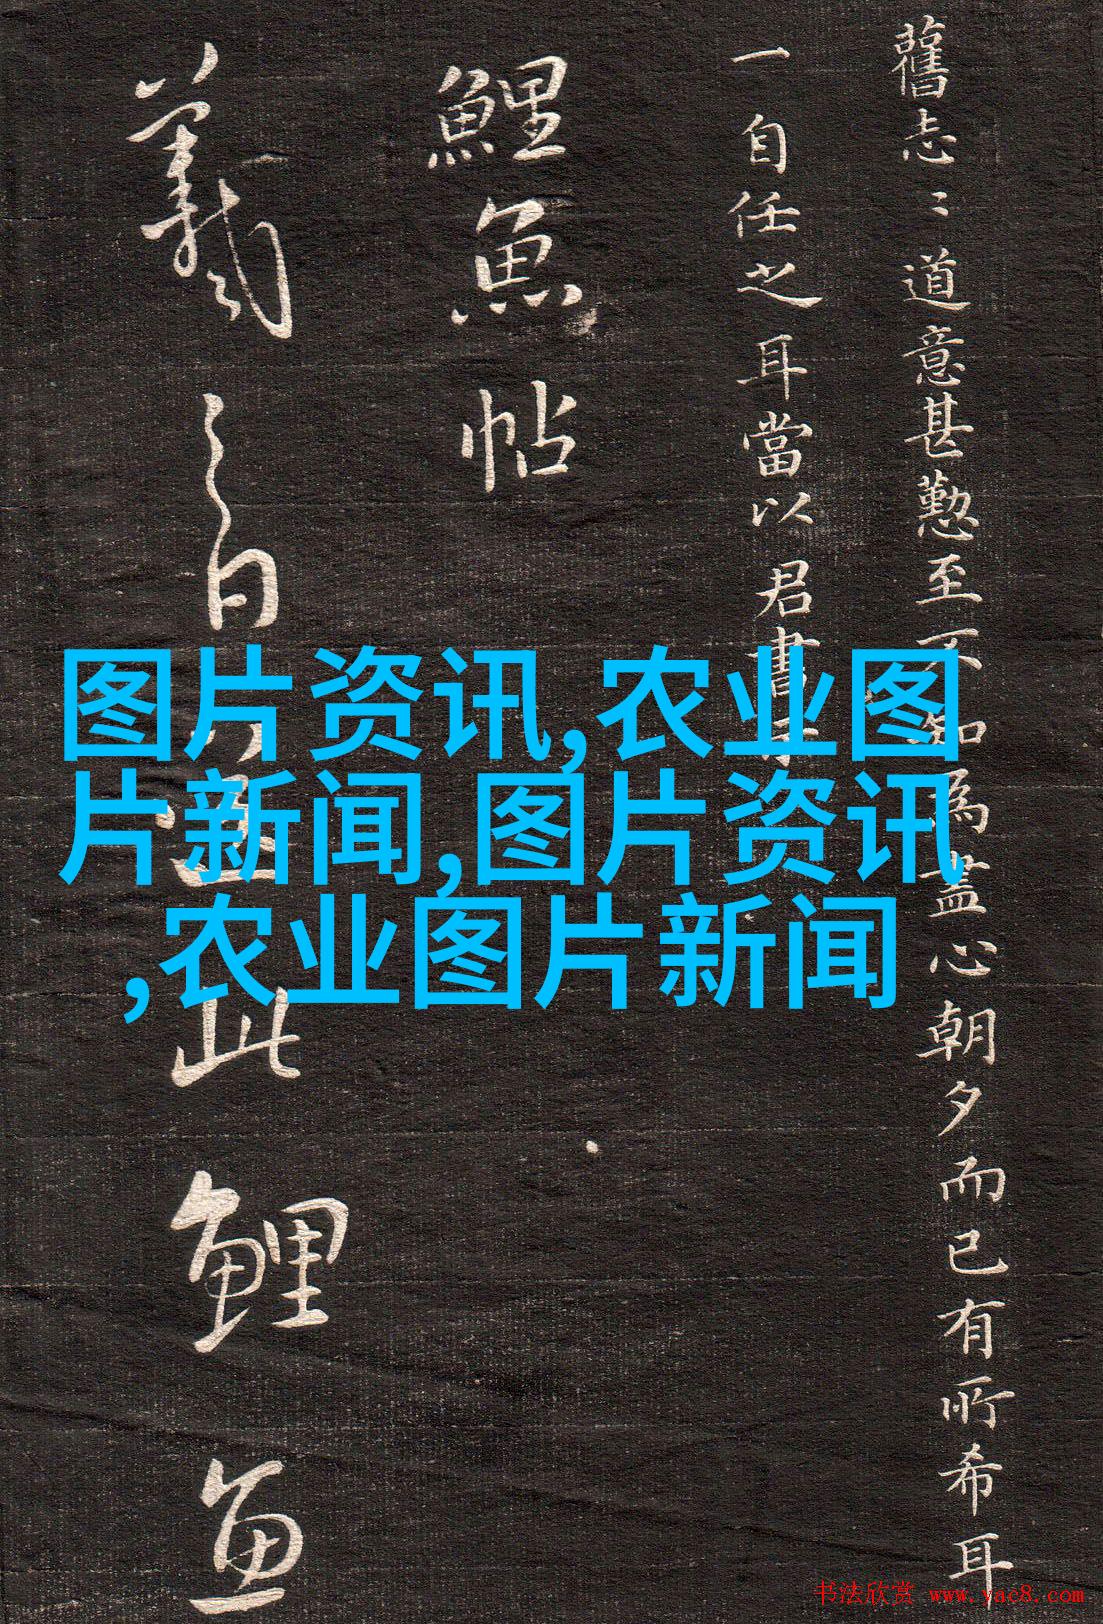 舊志〻道意甚懃至不知為盡心朝夕而已有所希耳
一自任之耳當以君書
鯉魚帖
羲之白
此鯉魚
图片资讯,农业图
片新闻,图片资讯
,农业图片新闻
书法欣赏 www.yac8.com